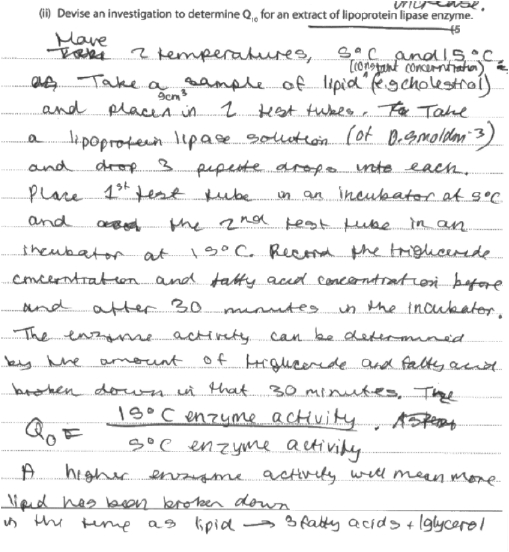 increase.
(ii) Devise an investigation to determine Q10 for an extract of lipoprotein lipase enzyme.
(5
Have
2 temperatures, 5°C and 15°C.
(constant concentration)
Take a sample of lipid (eg cholestrol)
5cm3
and place in 2 test tubes. Take
a lipoprotein lipase solution (of 0.5moldm-3)
and drop 3 pipette drops into each.
Place 1st test tube in an incubator at 5°C
and the 2nd test tube in an
incubator at 15°C. Record the trigliceride
concerntration and fatty acid concerntration before
and after 30 minutes in the incubator.
The enzyme activity can be determined
by the amount of trigliceride and fatty acid
broken down in that 30 minutes. The
15°C enzyme activity.
Q10 =
5°C enzyme activity
A higher enzyme activity will mean more
lipid has been broken down
in the time as lipid → 3 fatty acids + 1 glycerol